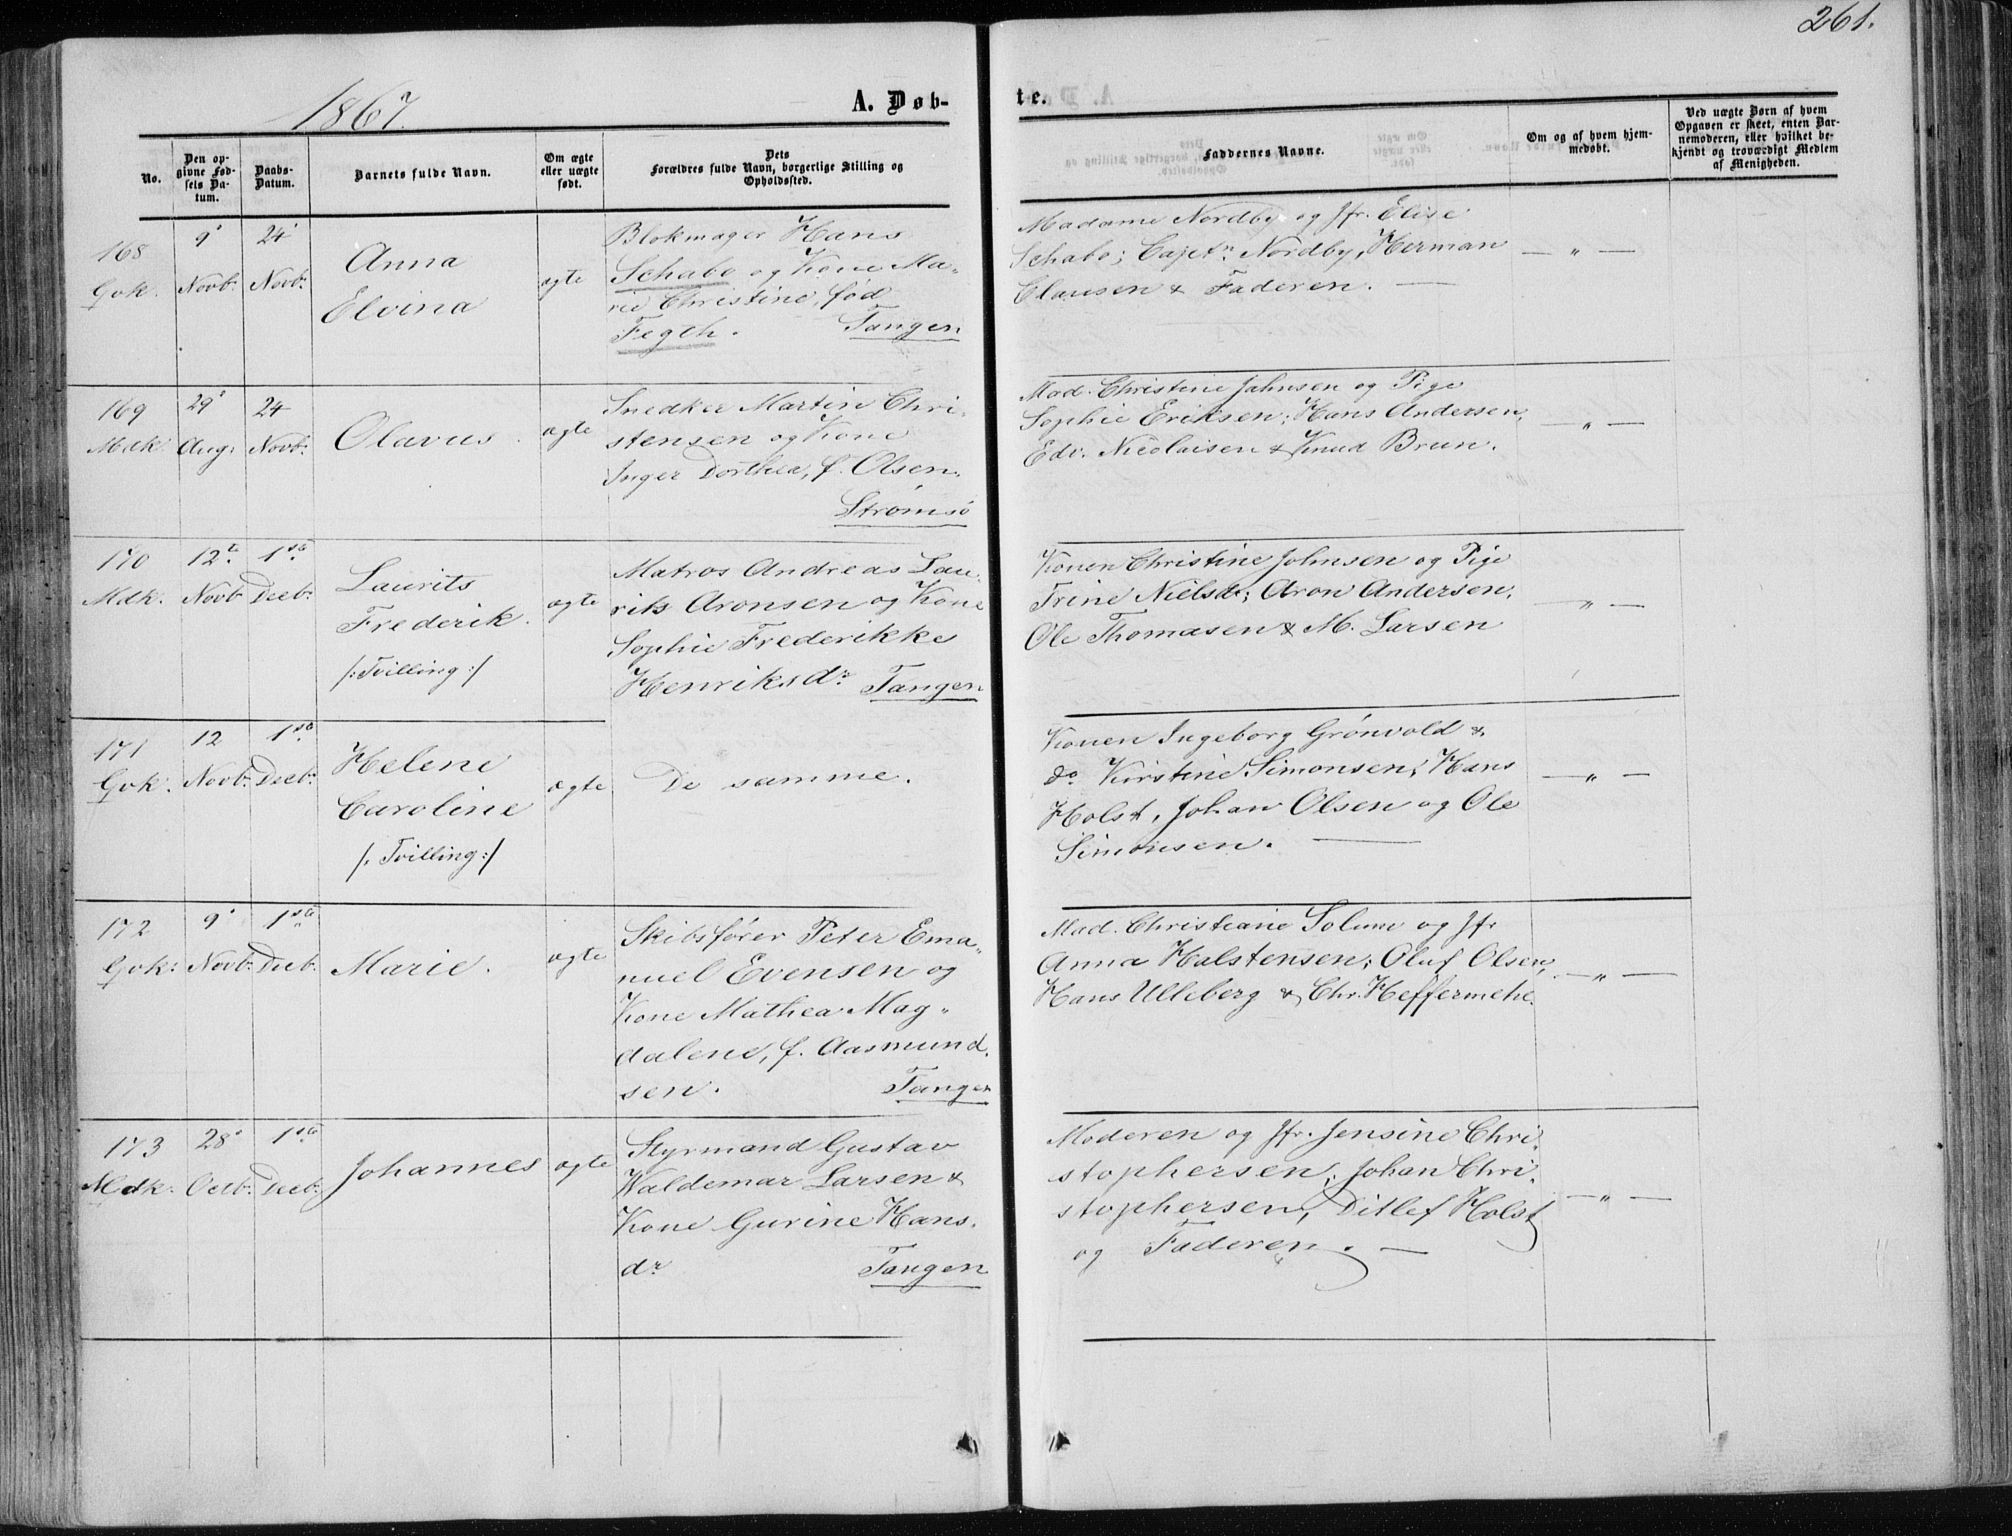 261.
1867.
A. Døb-
te.
No.
Den op-
givne Fød-
sels Da-
tum.
Daabs-
Datum.
Barnets fulde Navn.
Om ægte
eller uægte
født.
Dets
Forældres fulde Navn, borgerlige Stilling og
Opholdssted.
Faddernes Navne.
Om og af hvem hjem-
medøbt.
Ved uægte Børn af hvem
Opgaven er skeet, enten Bar-
nemoderen, eller hvilket be-
kjendt og troværdigt Medlem
af Menigheden.
168
Gvk.
9
Novb.
24
Novb.
Anna
Elvina
ægte
Blokmager Hans
Schabo og Kone Ma-
rie Christine, fød
Fegth. Tangen
Madame Nordby og Jfr. Elise
Schabo; Capt. Nordby, Herman
Clausen & Faderen. —
— " —
169
Mdk.
29
Aug.
24
Novb.
Olavus.
ægte
Snedker Martin Chri-
stensen og Kone
Inger Dorthea, f. Olsen.
Strømsö
Mad. Christine Johnsen og Pige
Sophie Eriksen; Hans Andersen,
Edv. Nicolaisen & Knud Brun.
— " —
170
Mdk.
12te
Novb
1ste
Decb.
Laurits
Frederik.
/:Tvilling:/
ægte
Matros Andreas Lau-
rits Aronsen og Kone
Sophie Frederikke
Henriksdr Tangen
Konen Christine Johnsen og Pige
Trine Nielsd.; Aron Andersen,
Ole Thomasen & M. Larsen
— " —
171
Gvk.
12
Novb.
1ste
Decb.
Helene
Caroline
/:Tvilling:/
ægte
De samme.
Konen Ingeborg Grönvold &
do Kirstine Simonsen; Hans
Holst, Johan Olsen og Ole
Simonsen. —
— " —
172
Gvk:
9
Novb.
1ste
Decb.
Marie.
ægte
Skibsfører Peter Ema-
nuel Evensen og
Kone Mathea Mag-
dalene, f. Aasmund-
sen. Tangen
Mad. Christiane Solum og Jfr
Anna Halstensen; Oluf Olsen,
Hans Ulleberg & Chr. Heffermehl.
— " —
173
Mdk.
28
Octb.
1ste
Decb.
Johannes
ægte
Styrmand Gustav
Waldemar Larsen &
Kone Gurine Hans-
dr Tangen
Moderen og Jfr. Jensine Chri-
stophersen; Johan Chri-
stophersen, Ditlef Holst
og Faderen. —
— " —